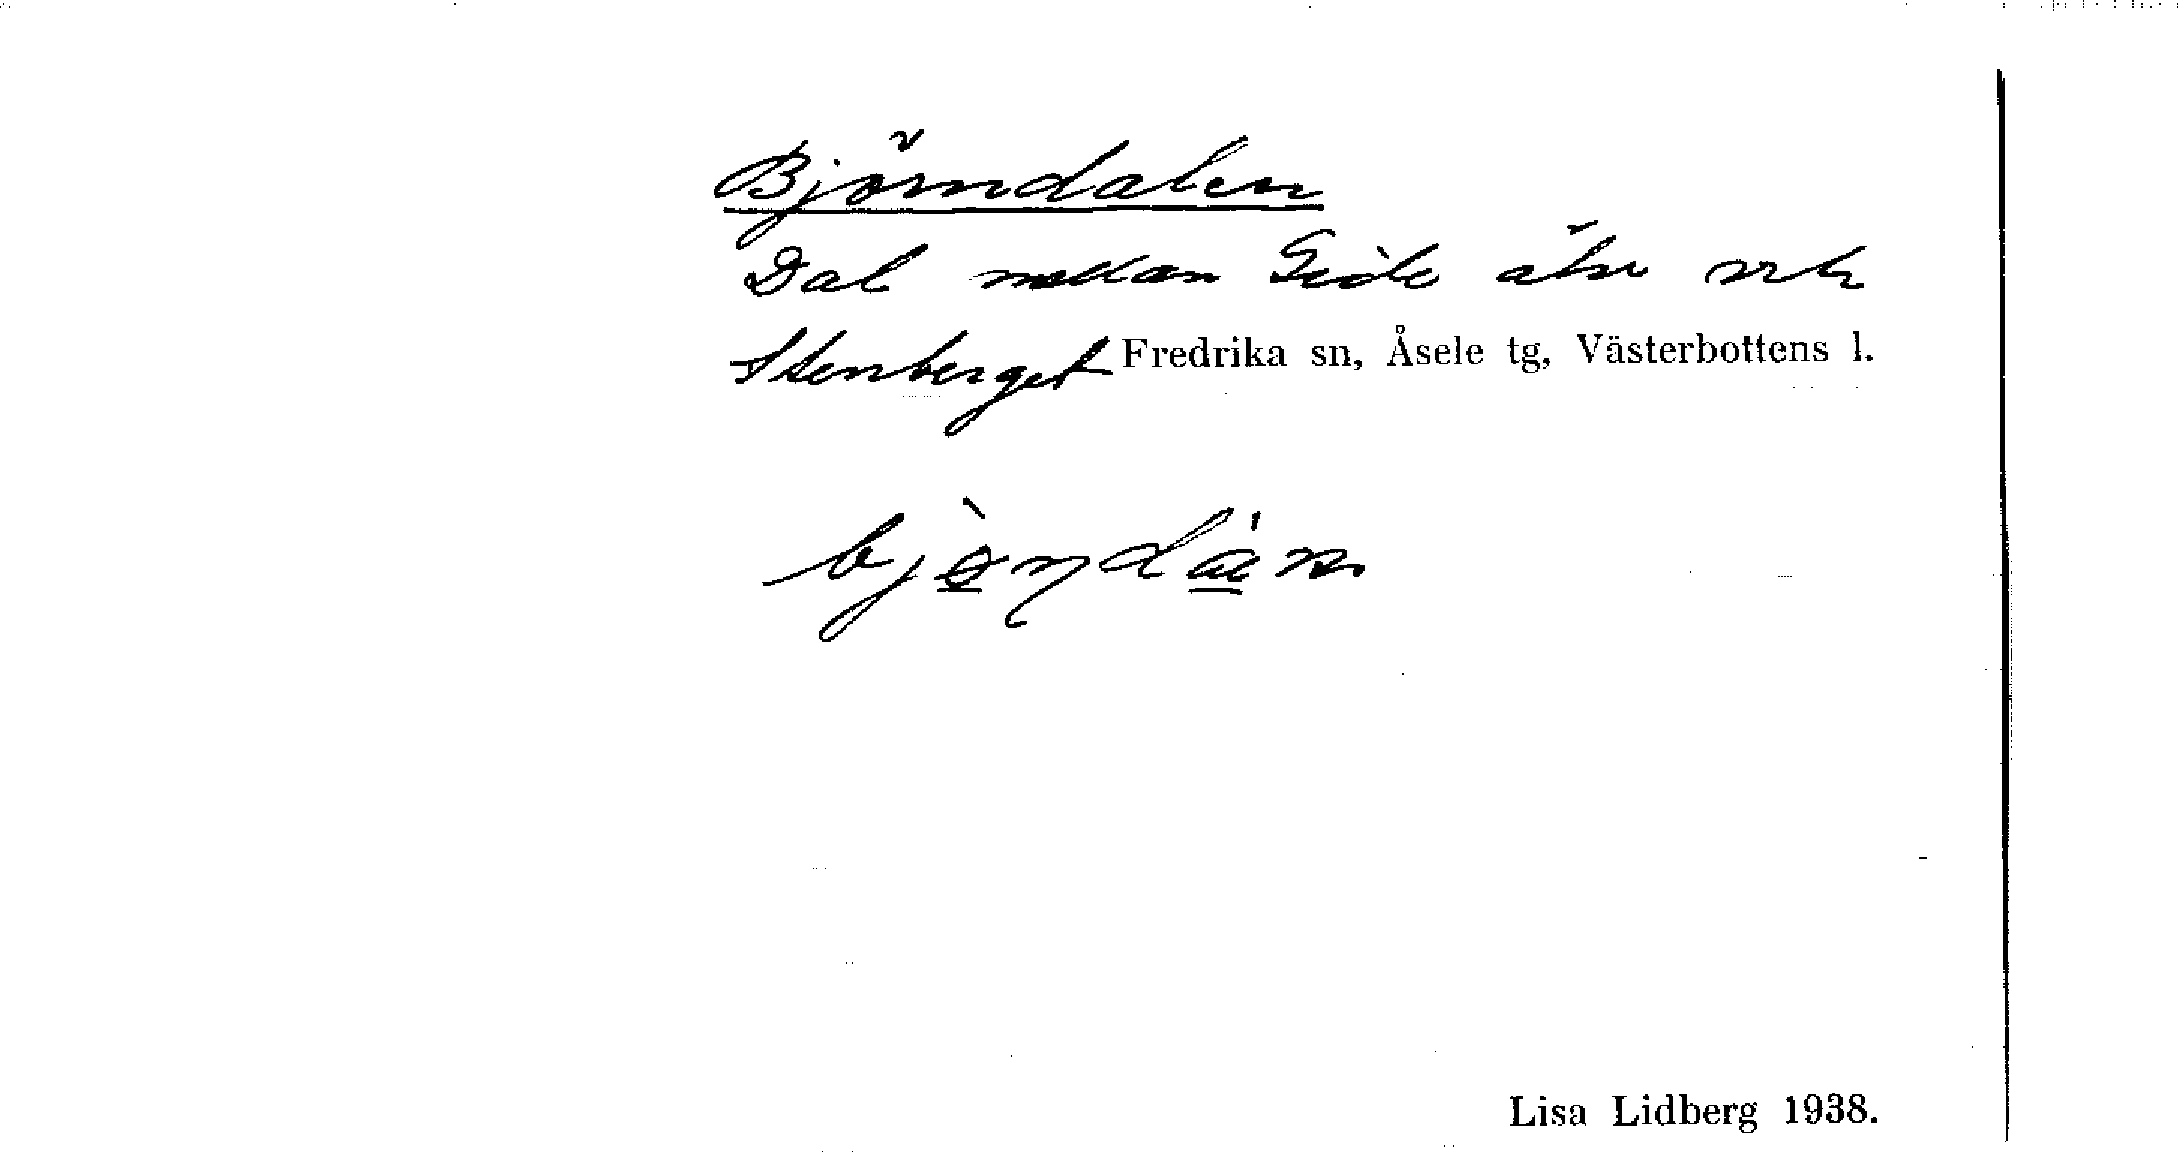 Björndalen
Dal mellan Gide älv och
Stenberget Fredrika sn, Åsele tg, Västerbottens l.
Lisa Lidberg 1938.